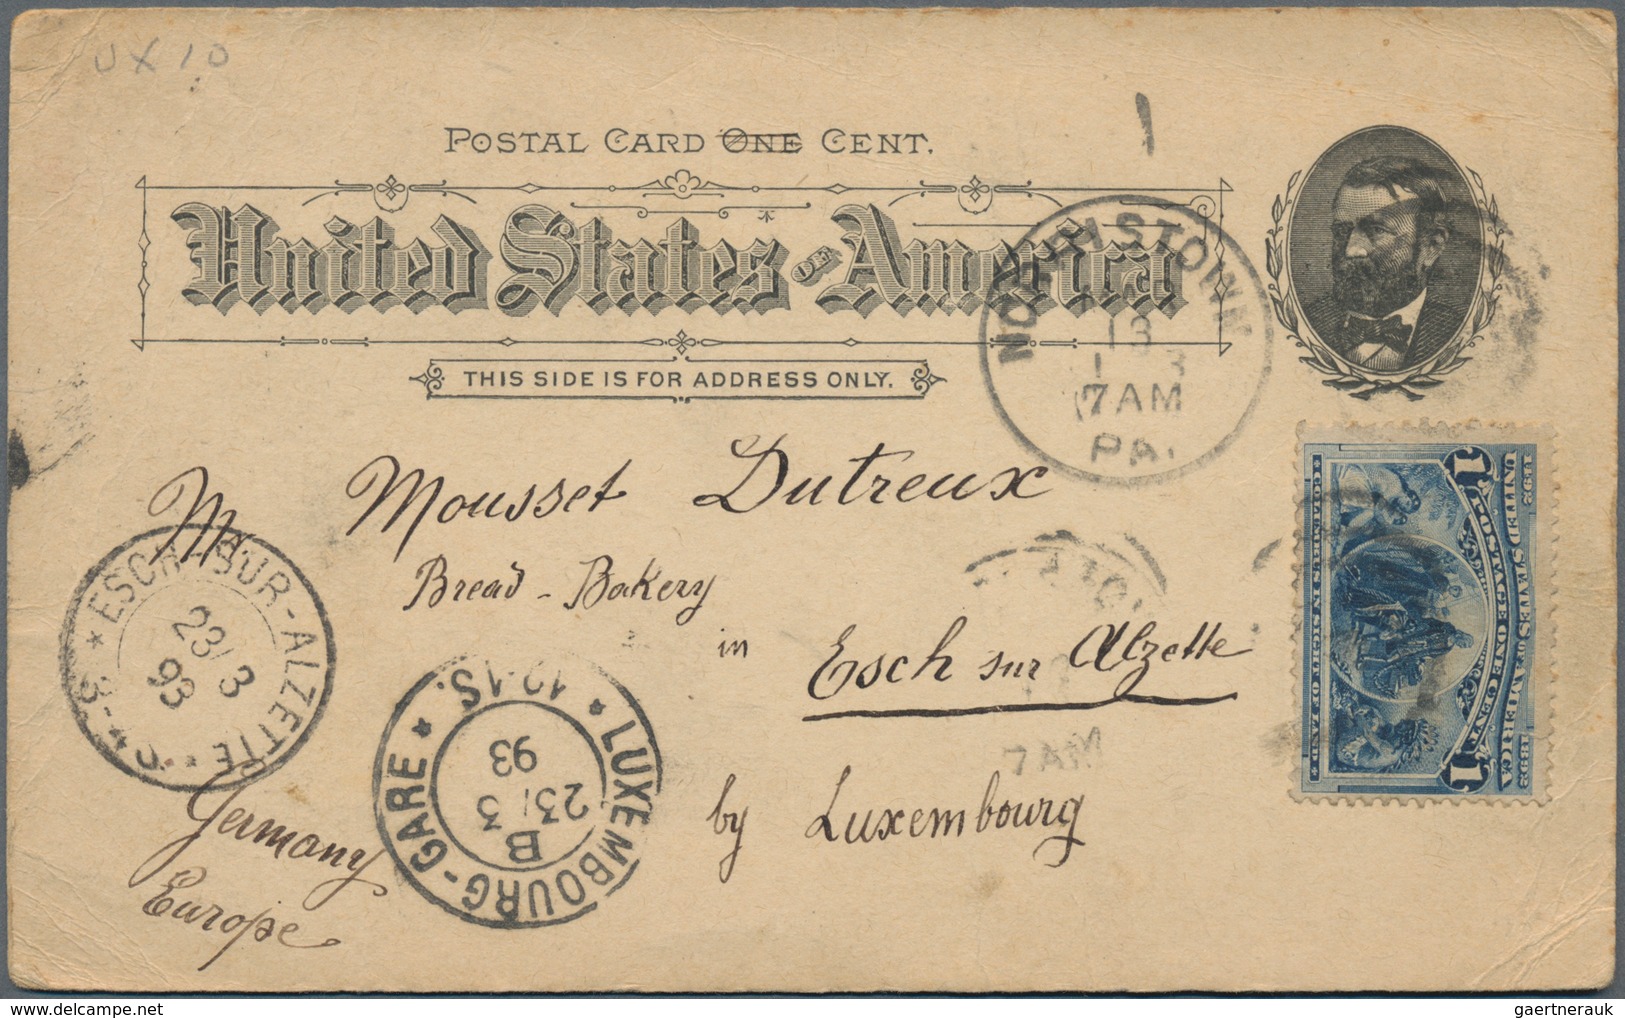 UX10
POSTAL CARD ONE CENT.
United States of America
THIS SIDE IS FOR ADDRESS ONLY.
NORRISTOWN
13
7 AM
PA.
Mr. Mousset Dutreux
Bread-Bakery
in Esch sur Alzette
by Luxembourg
Germany
Europe
* ESCH-SUR-ALZETTE
23/3
93
LUXEMBOURG-GARE * 12-1S. *
B
23/3
93
1492 1892
UNITED STATES OF AMERICA
1 POSTAGE ONE CENT 1
COLUMBUS IN SIGHT OF LAND
gaertnerauk